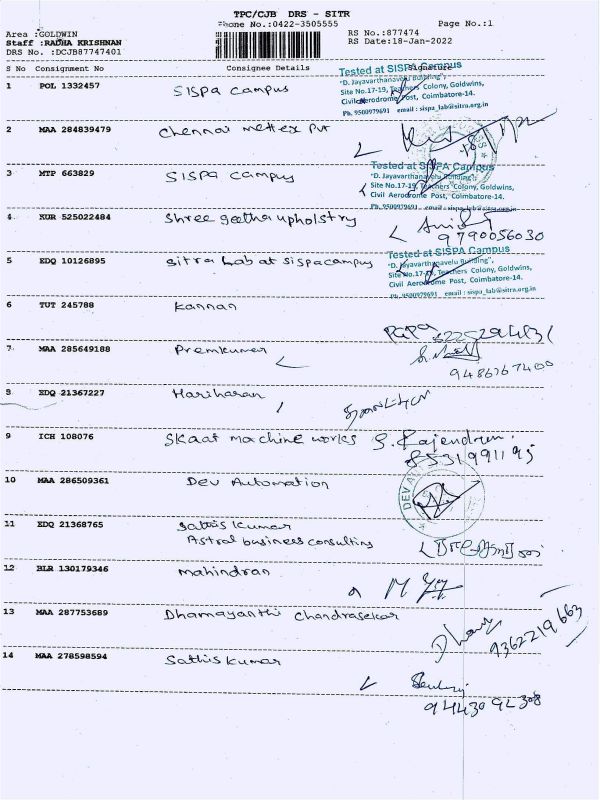 TPC/CJB DRS - SITR
Phone No.:0422-3505555
Page No.:1
Area :GOLDWIN
Staff :RADHA KRISHNAN
DRS No. :DCJB87747401
RS No.:877474
RS Date:18-Jan-2022
S No Consignment No Consignee Details Signature
1 POL 1332457 SISPA campus
Tested at SISPA Campus
"D. Jayavarthanavelu Building",
Site No.17-19, Teachers Colony, Goldwins,
Civil Aerodrome Post, Coimbatore-14.
Ph. 9500979691 email : sispa_lab@sitra.org.in
2 MAA 284839479 Chennai mettex Pvt
3 MTP 663829 SISPA campus
Tested at SISPA Campus
"D. Jayavarthanavelu Building",
Site No.17-19, Teachers Colony, Goldwins,
Civil Aerodrome Post, Coimbatore-14.
Ph. 9500979691 email : sispa_lab@sitra.org.in
4 KUR 525022484 Shree geetha upholstry
9790056030
5 EDQ 10126895 Sitra Lab at sispa campus
Tested at SISPA Campus
"D. Jayavarthanavelu Building",
Site No.17-19, Teachers Colony, Goldwins,
Civil Aerodrome Post, Coimbatore-14.
Ph. 9500979691 email : sispa_lab@sitra.org.in
6 TUT 245788 Kannan
7 MAA 285649188 Premkumar
9486767400
8 EDQ 21367227 Hariharan
9 ICH 108076 Skaat machine works S. Rajendran.
8531991195
10 MAA 286509361 Dev Automation
DEV A
11 EDQ 21368765 Sathis kumar
Astral business consulting
12 BLR 130179346 mahindran
13 MAA 287753689 Dhamayanthi Chandrasekar
9362219663
14 MAA 278598594 Sathis kumar
9443094308